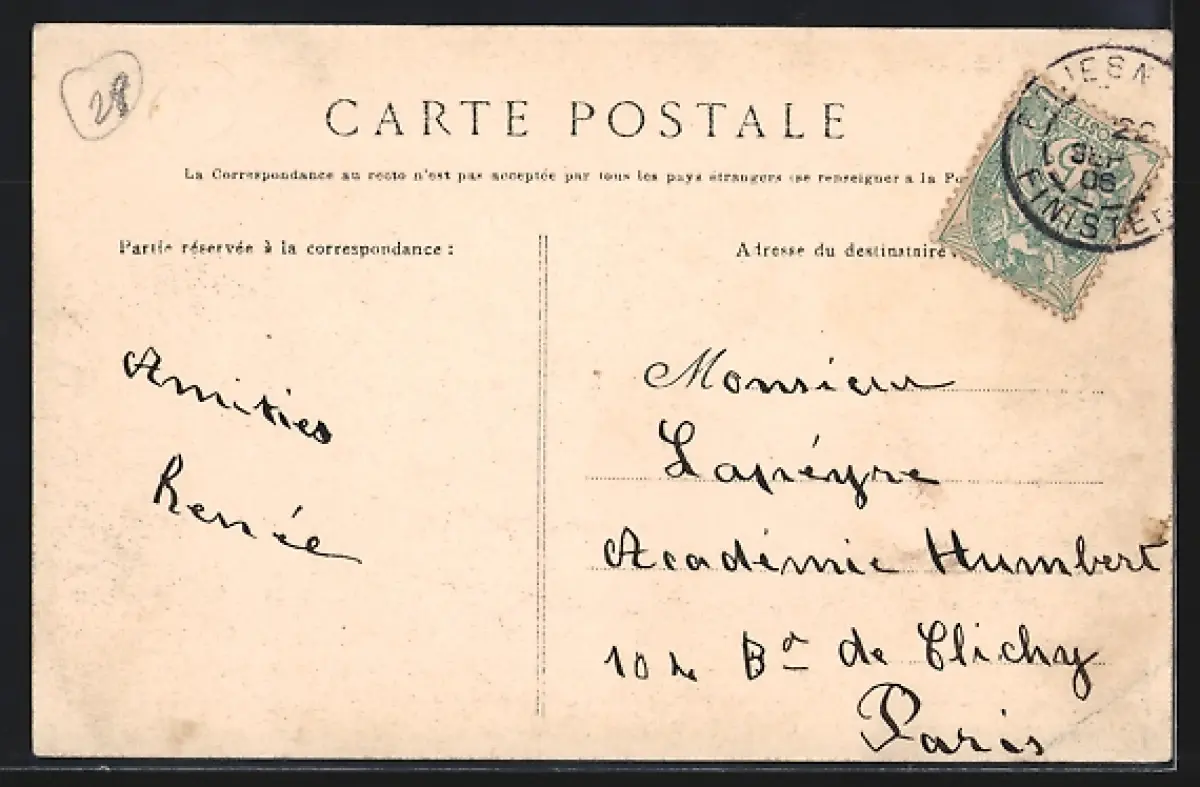 28
CARTE POSTALE
La Correspondance au recto n'est pas acceptée par tous les pays étrangers (se renseigner a la
Partie réservée à la correspondance :
Adresse du destinataire
22
SEPT
06
FINISTÈRE
Amitiés
Renée
Monsieur
Lapéyre
Académie Humbert
104 Bd de Clichy
Paris